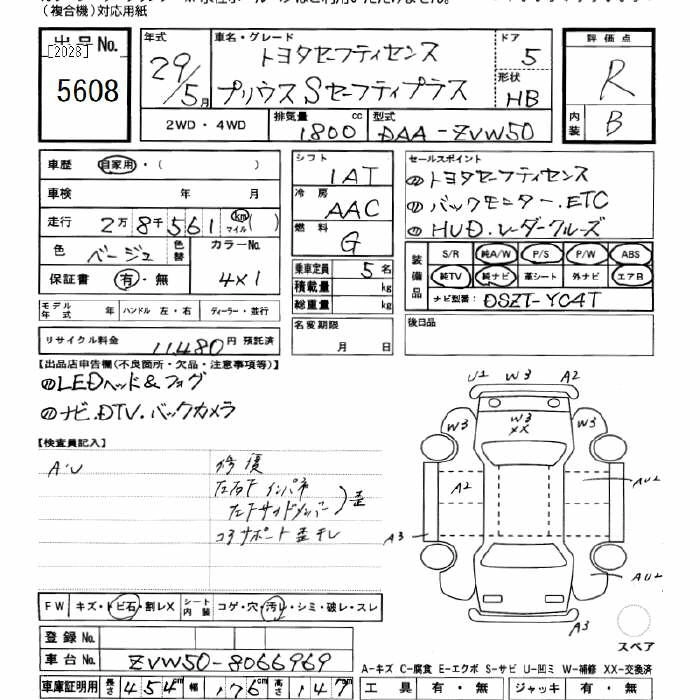 (複合機)対応用紙
出品No.
[2028]
5608
年式 29/5月
車名・グレード トヨタセーフティセンス
プリウスSセーフティプラス
ドア 5
形状 HB
2WD・4WD
排気量 1800 cc
型式 DAA-ZVW50
評価点 R
内装 B
車歴 自家用・( )
車検 年 月
走行 2万8千561 km マイル( )
色 ベージュ 色替 カラーNo. 4X1
保証書 有・無
モデル年式 年 ハンドル 左・右 ディーラー・並行
リサイクル料金 11,480 円 預託済
シフト 1AT
冷房 AAC
燃料 G
乗車定員 5 名
積載量 kg
総重量 kg
名変期限
月 日
セールスポイント
トヨタセーフティセンス
バックモニター.ETC
HUD.レーダークルーズ
装備品 S/R 純A/W P/S P/W ABS
純TV 純ナビ 革シート 外ナビ エアB
ナビ型番: DSZT-YC4T
後日品
【出品店申告欄(不良箇所・欠品・注意事項等)】
LEDヘッド&フォグ
ナビ.DTV.バックカメラ
【検査員記入】
A・U
修復
左右F インパネ
左Fサイドメンバー 歪
コアサポート歪 干レ
U2 W3 A2
W3 W3 XX W3
A2 AU2
A3 AU2
A3
スペア
FW キズ・トビ石・割レX シート内装 コゲ・穴・汚レ・シミ・破レ・スレ
登録No.
車台No. ZVW50-8066969
A-キズ C-腐食 E-エクボ S-サビ U-凹ミ W-補修 XX-交換済
車庫証明用 長さ 454 cm 幅 176 cm 高さ 147
工具 有・無 ジャッキ 有・無